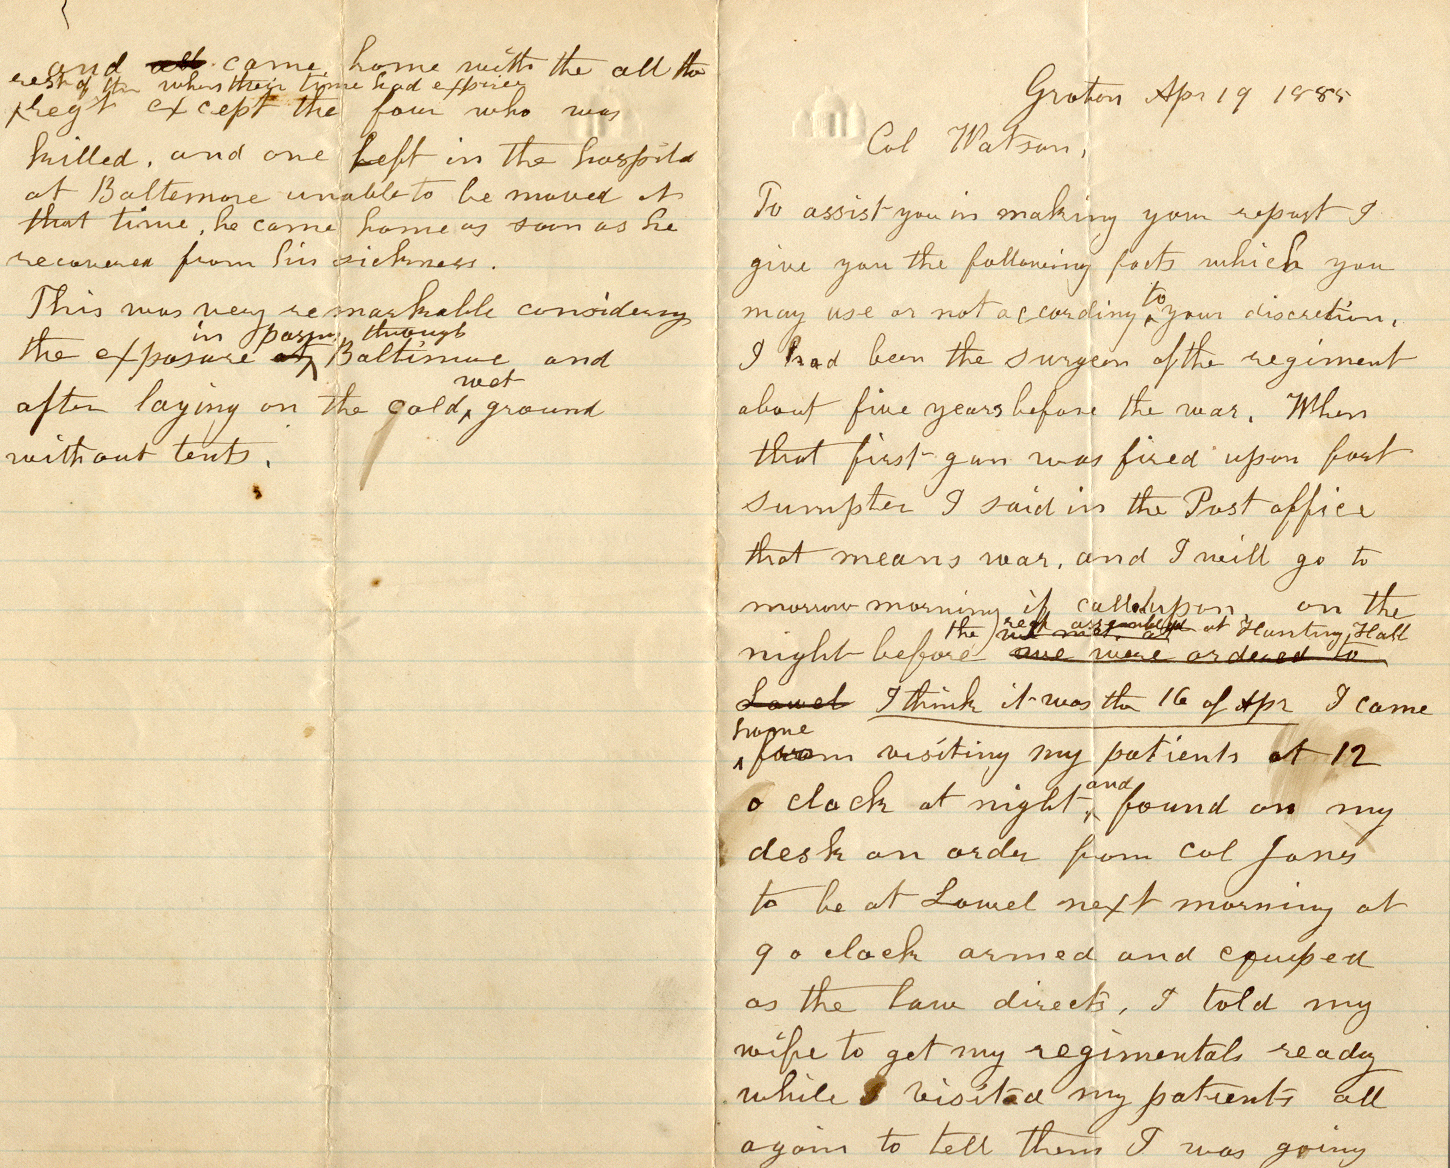 Groton Apr 19 1885
Col Watson,
To assist you in making your report I
give you the following facts which you
may use or not according to your discretion,
I had been the surgeon of the regiment
about five years before the war. When
that first gun was fired upon fort
sumpter I said in the Post office
that means war, and I will go to
morrow morning if called upon, on the
the regt assembled at Hunting Hall
night before we were ordered to
Lowel I think it was the 16 of Apr I came
home
from visiting my patients at 12
o clock at night, and found on my
desk an order from Col Jones
to be at Lowel next morning at
9 o clock armed and equiped
as the law directs, I told my
wife to get my regimentals ready
while I visited my patients all
again to tell them I was going
and all came home with the all the
rest of the when their time had expired
regt except the four who was
killed, and one left in the hospital
at Baltemore unable to be moved at
that time, he came home as soon as he
recovered from his sickness.
This was very remarkable considering
in passing through
the exposure at Baltimore and
after laying on the cold, wet ground
without tents.